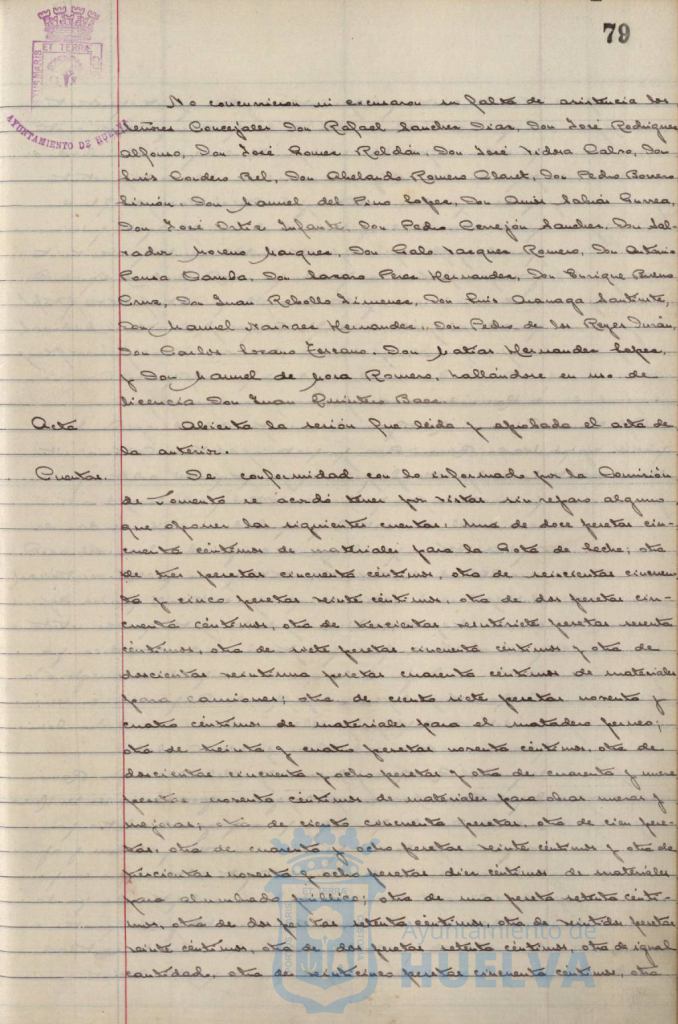 79
PORTUS MARIS ET TERRE CUSTODIA
AYUNTAMIENTO DE HUELVA
No concurrieron ni excusaron su falta de asistencia los
señores Concejales Don Rafael Sanchez Diaz, Don José Rodriguez
Alfonso, Don José Gomez Roldán, Don José Vidosa Calvo, Don
Luis Cordero Bel, Don Abelardo Romero Claret, Don Pedro Borrero
Limón, Don Manuel del Pino Lopez, Don Amós Sabrás Gurrea,
Don José Ortiz Infante, Don Pedro Cerrejón Sanchez, Don Sal-
vador Moreno Marquez, Don Galo Vazquez Romero, Don Antonio
Ponsa Gamba, Don Lazaro Perez Hernandez, Don Enrique Bueno
Cruz, Don Juan Rebollo Jimenez, Don Luis
Don Manuel Narvaez Hernandez, Don Pedro de los Reyes Durán,
Don Carlos Lozano Don Matías Hernandez Lopez,
y Don Manuel de Mora Romero, hallándose en uso de
licencia Don Juan Quintero Baez.
Acta Abierta la sesión fue leida y aprobada el acta de
la anterior.
Cuentas. De conformidad con lo informado por la Comisión
de Fomento se acordó tener por vistas sin reparo alguno
que oponer las siguientes cuentas. Una de doce pesetas cin-
cuenta céntimos de materiales para la Gota de leche; otra
de tres pesetas cincuenta céntimos, otra de seiscientas cincuen-
ta y cinco pesetas veinte céntimos, otra de dos pesetas cin-
cuenta céntimos, otra de trescientas veintisiete pesetas sesenta
céntimos, otra de siete pesetas cincuenta céntimos y otra de
doscientas veintiuna pesetas cuarenta céntimos de materiales
para camiones; otra de ciento siete pesetas noventa y
cuatro céntimos de materiales para el matadero
otra de treinta y cuatro pesetas noventa céntimos, otra de
doscientas cincuenta y ocho pesetas y otra de cuarenta y nueve
pesetas noventa céntimos de materiales para obras nuevas y
mejoras; otra de ciento cincuenta pesetas, otra de cien pese-
tas, otra de cuarenta y ocho pesetas veinte céntimos y otra de
trescientas noventa y ocho pesetas diez céntimos de materiales
para alumbrado público; otra de una peseta setenta cénti-
mos, otra de dos pesetas setenta céntimos, otra de veintidos pesetas
veinte céntimos, otra de dos pesetas setenta céntimos, otra de igual
cantidad, otra de veinticinco pesetas cincuenta céntimos, otra
Ayuntamiento de
HUELVA